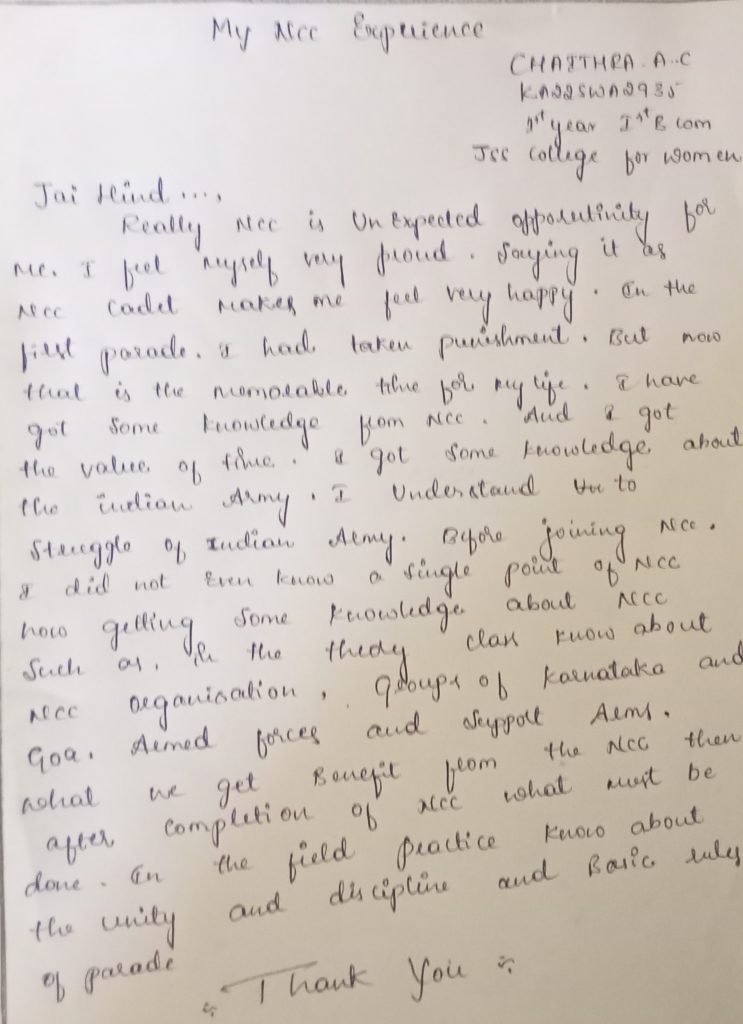 My Ncc Experience
CHAITHRA. A.C
KA22SWA2935
1st year Ist B com
JSS College for women
Jai Hind ....,
Really Ncc is UnExpected opporutinity for
me. I feel myself very proud. Saying it as
Ncc Cadet makes me feel very happy. In the
first parade. I had taken punishment. But now
that is the memorable time for my life. I have
got some knowledge from Ncc. And I got
the value of time. I got some knowledge about
the indian Army. I Understand the to
struggle of Indian Army. Before joining Ncc.
I did not Even know a single point of NCC
now getting some knowledge about NCC
Such as, In the theory class know about
Ncc organisation, Groups of Karnataka and
Goa. Armed forces and Support Arms.
what we get Benefit from the NCC then
after completion of Ncc what must be
done. In the field practice know about
the unity and discipline and Basic rules
of parade
Thank You